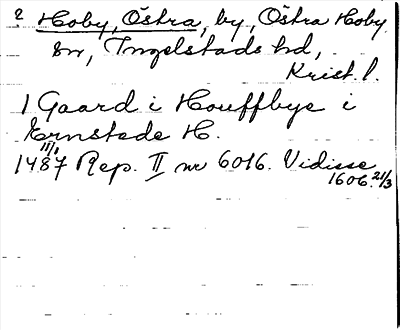 2 Hoby, Östra, by, Östra Hoby
sn, Ingelstads hd,
Krist. l.
1 Gaard i Houffbye i
Ernstede H.
11/1
1487 Rep. II nr 6016. Vidisse
1606 21/3